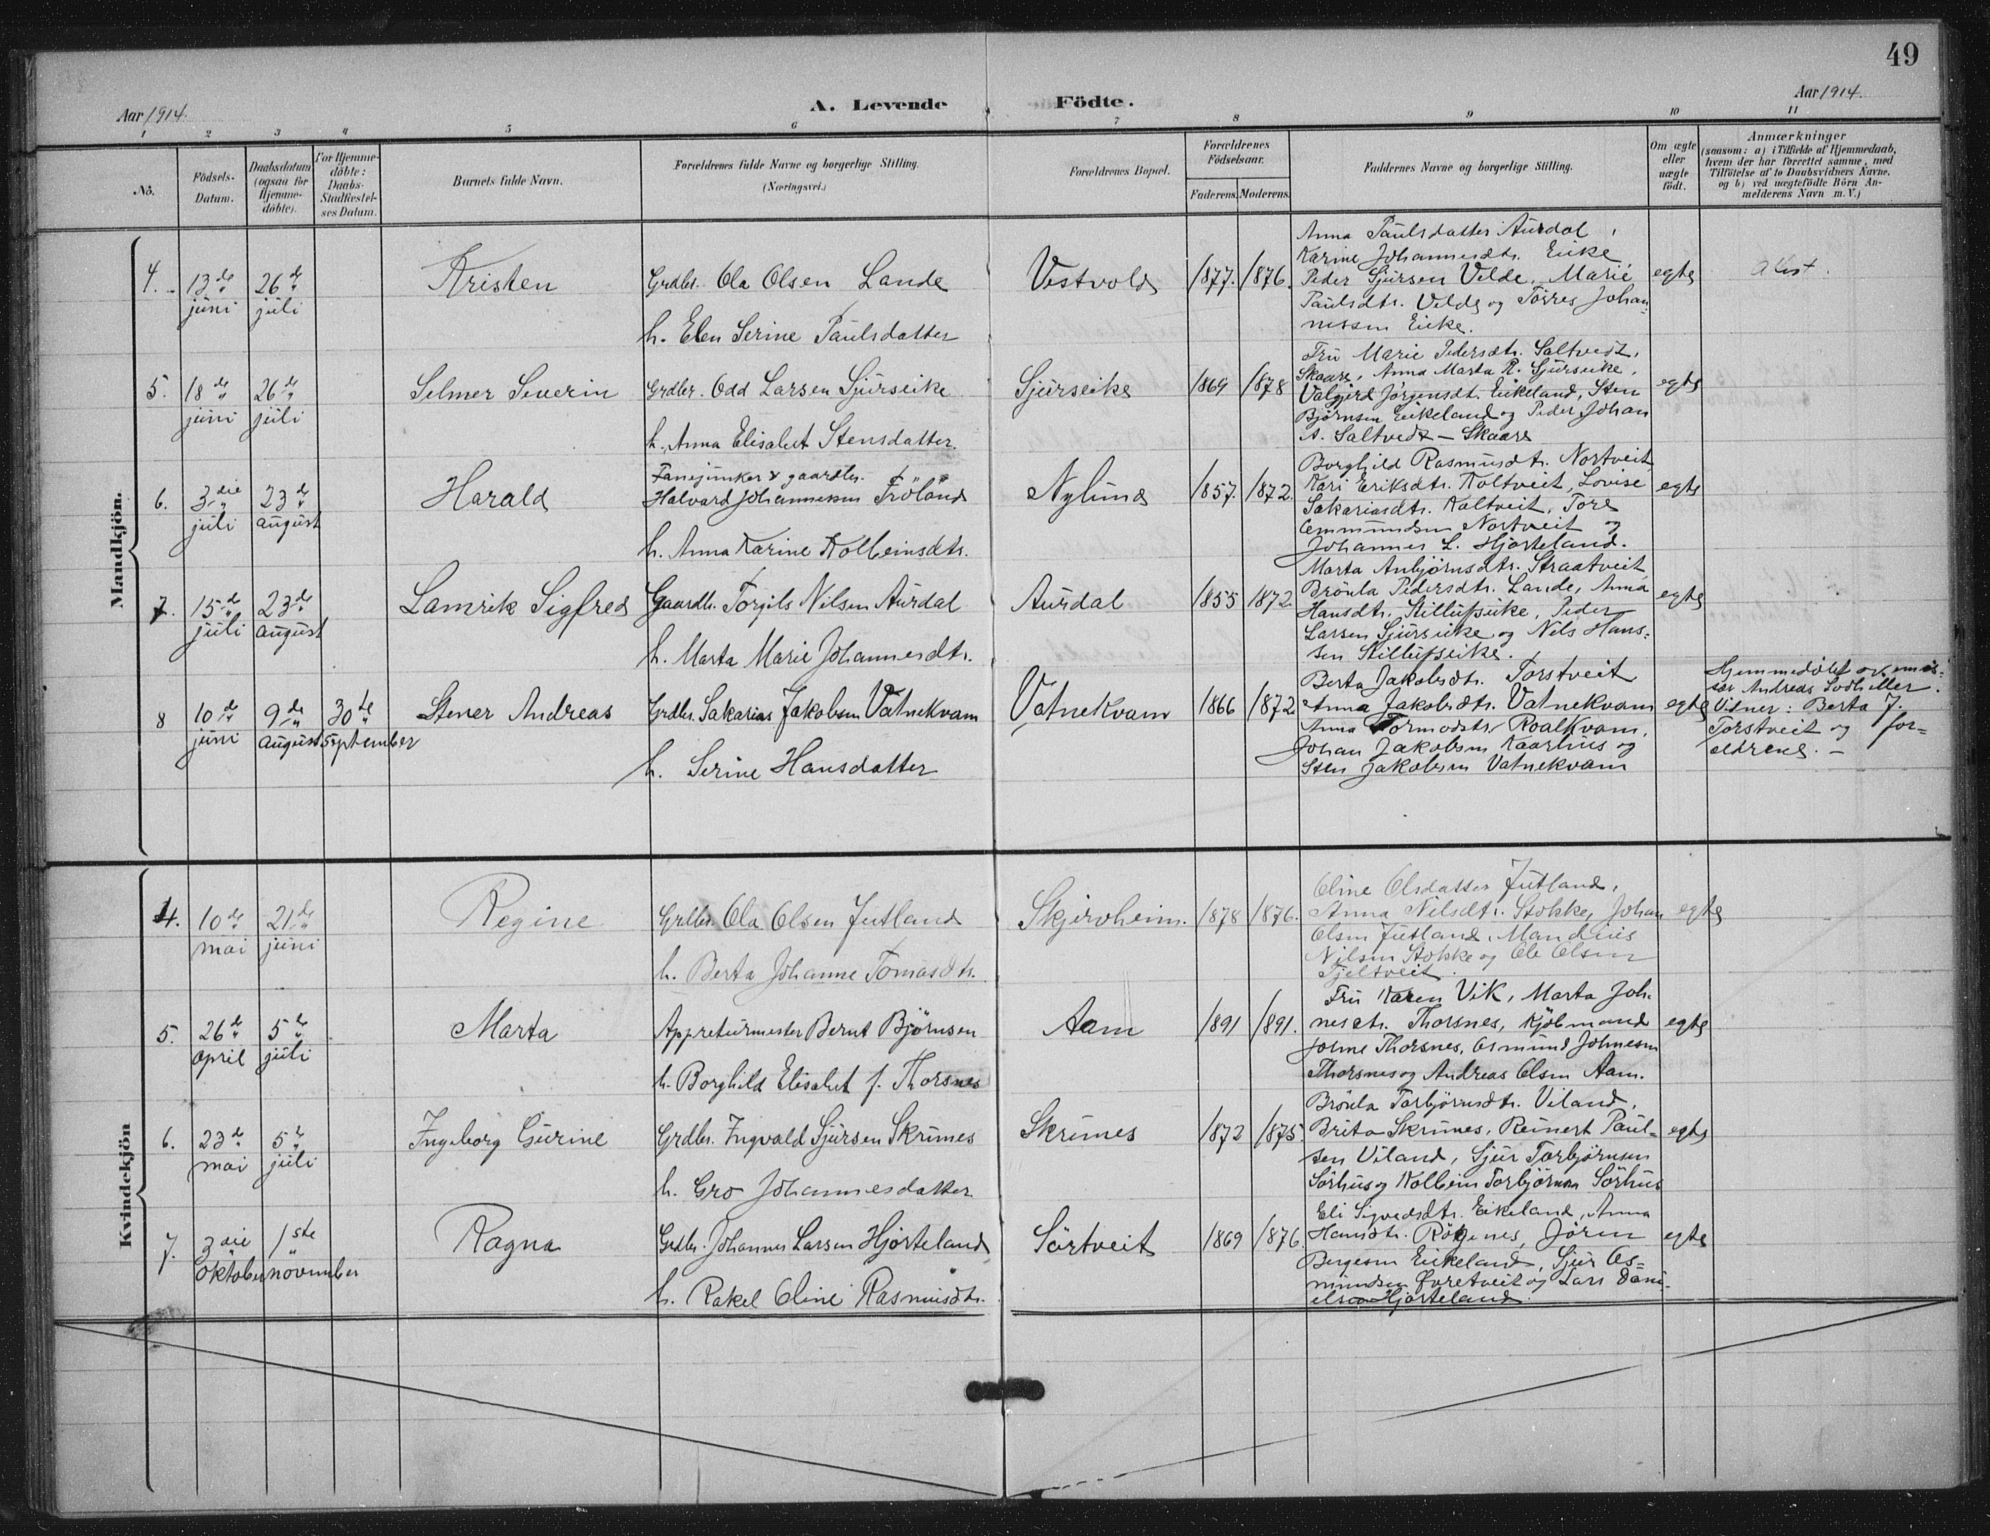 49
Aar 1914.
A. Levende Födte.
Aar 1914.
1 2 3 4 5 6 7 8 9 10 11
No.
Födsels-
Datum.
Daabsdatum
(ogsaa for
Hjemme-
döbte).
For Hjemme-
döbte:
Daabs-
Stadfæstel-
ses Datum.
Barnets fulde Navn.
Forældrenes fulde Navne og borgerlige Stilling.
(Næringsvei.)
Forældrenes Bopæl.
Forældrenes
Födselsaar.
Faderens. Moderens.
Faddernes Navne og borgerlige Stilling.
Om ægte
eller
uægte
födt.
Anmærkninger
(saasom: a) i Tilfælde af Hjemmedaab,
hvem der har forrettet samme, med
Tilföielse af to Daabsvidners Navne,
og b) ved uægtefödte Börn An-
melderens Navn m. V.)
Mandkjön.
4. 13de juni
26de juli
Kristen
Grdbr. Ola Olsen Lande
h. Elen Serine Paulsdatter
Vestvold
1877. 1876.
Anna Paulsdatter Aurdal,
Karine Johannesdtr. Eike,
Peder Sjursen Velde, Marie
Paulsdtr. Velde og Torres Johan-
nessen Eike.
egte
5. 18de juni
26de juli
Selmer Severin
Grdbr. Odd Larsen Sjurseike
h. Anna Elisabet Stensdatter.
Sjurseike
1869 1878
Fru Marie Pedersdtr. Saltvedt,
Skaare, Anna Marta R. Sjurseike,
Valgjerd Jørgensdt. Eikeland, Sten
Bjørnsen Eikeland og Peder Johan
A. Saltvedt – Skaare
egte
6. 3die juli
23de august
Harald
Fanejunker & gaardbr.
Halvard Johannesen Fröland
h. Anna Karine Kolbeinsdtr.
Nylund
1857. 1872.
Borghild Rasmusdtr. Nortveit
Kari Eriksdtr. Koltveit, Lovise
Sakariasdtr. Koltveit, Tore
Ommundsen Nortveit og
Johannes L. Hjorteland.
egte
7. 15de juli
23de august
Lamrik Sigfred
Gaardbr. Torgils Nilsen Aurdal
h. Marta Marie Johannesdtr.
Aurdal
1855 1872
Marta Anbjørnsdtr. Straatveit
Brönla Pedersdtr. Lande, Anna
Hansdtr. Stillufseike, Peder
Larsen Sjurseike og Nils Hans-
sen Stillufseike.
egte
8 10de juni
9de august
30te september
Stener Andreas
Grdbr. Sakarias Jakobsen Vatnekvam
h. Serine Hansdatter
Vatnekvam
1866 1872
Berta Jakobsdtr. Torstveit
Anna Jakobsdtr. Vatnekvam
Anna Tormodsdtr. Roalkvam,
Johan Jakobsen Kaarhus og
Sten Jakobsen Vatnekvam
egte
Hjemmedøbt av emis-
sær Andreas
Vidner: Berta J.
Torstveit og for-
eldrene. –
Kvindekjön
4. 10de mai
21de juni
Regine
Grdbr. Ola Olsen Jutland
h. Berta Johanne Tomasdtr.
Skjervheim.
1878 1876.
Oline Olsdatter Jutland,
Anna Nilsdtr. Stokke, Johan
Olsen Jutland, Mandius
Nilsen Stokke og Ole Olsen
Tjeltveit.
egte
5. 26de april
5te juli
Marta
Appreturmester Bernt Björnsen
h. Borghild Elisabet f. Thorsnes
Aam
1891 1891.
Fru Karen Vik, Marta Joh-
nesdtr. Thorsnes, Kjöbmand
Johne Thorsnes, Osmund Johnesen
Thorsnes og Andreas Olsen Aam.
egte
6. 23de mai
5te juli
Ingeborg Gurine
Grdbr. Ingvald Sjursen Skrunes
h. Gro Johannesdatter
Skrunes
1872 1875
Brönla Torbjörnsdtr. Viland,
Brita Skrunes, Reinert Paul-
sen Viland, Sjur Torbjörnsen
Sörhus og Kolbein Torbjörnsen Sörhus
egte
7. 3die oktober
1ste november
Ragna
Grdbr. Johannes Larsen Hjorteland
h. Rakel Oline Rasmusdtr.
Sörtveit
1869 1876
Eli Sigvedsdtr. Eikeland, Anna
Hansdtr. Rögenes, Jören
Bergesen Eikeland, Sjur Os-
mundsen Øvretveit og Lars Dani-
elsen Hjorteland.
egte